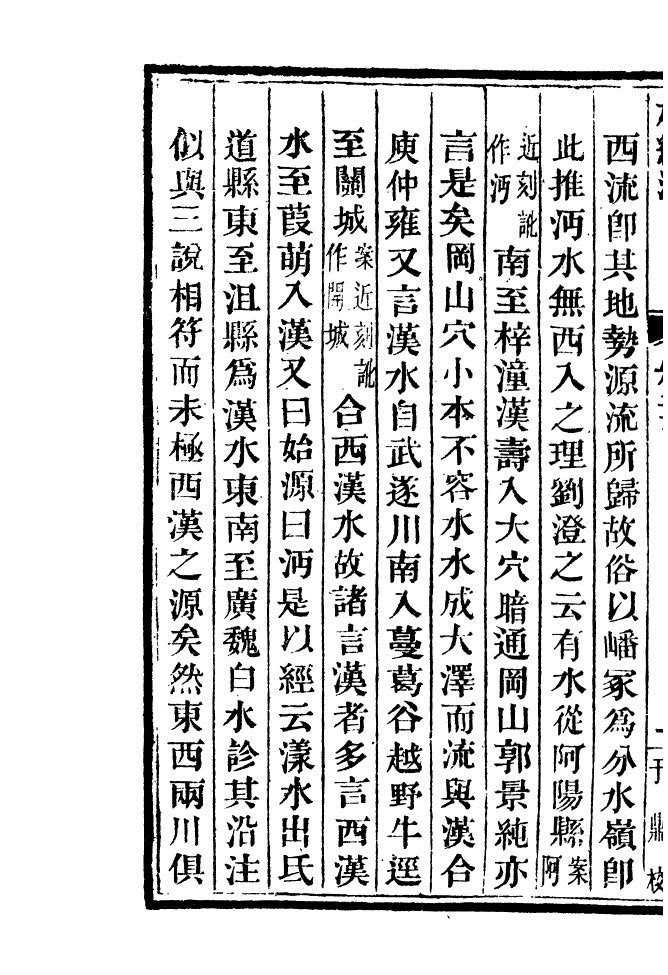 西流卽其地勢源流所歸故俗以嶓冢爲分水嶺卽
此推沔水無西入之理劉澄之云有水從阿陽縣案阿
近刻訛作沔南至梓潼漢壽入大穴暗通岡山郭景純亦
言是矣岡山穴小本不容水水成大澤而流與漢合
庾仲雍又言漢水自武遂川南入蔓葛谷越野牛逕
至關城案近刻訛作開城合西漢水故諸言漢者多言西漢
水至葭萌入漢又曰始源曰沔是以經云漾水出氐
道縣東至沮縣爲漢水東南至廣魏白水診其沿注
似與三說相符而未極西漢之源矣然東西兩川俱